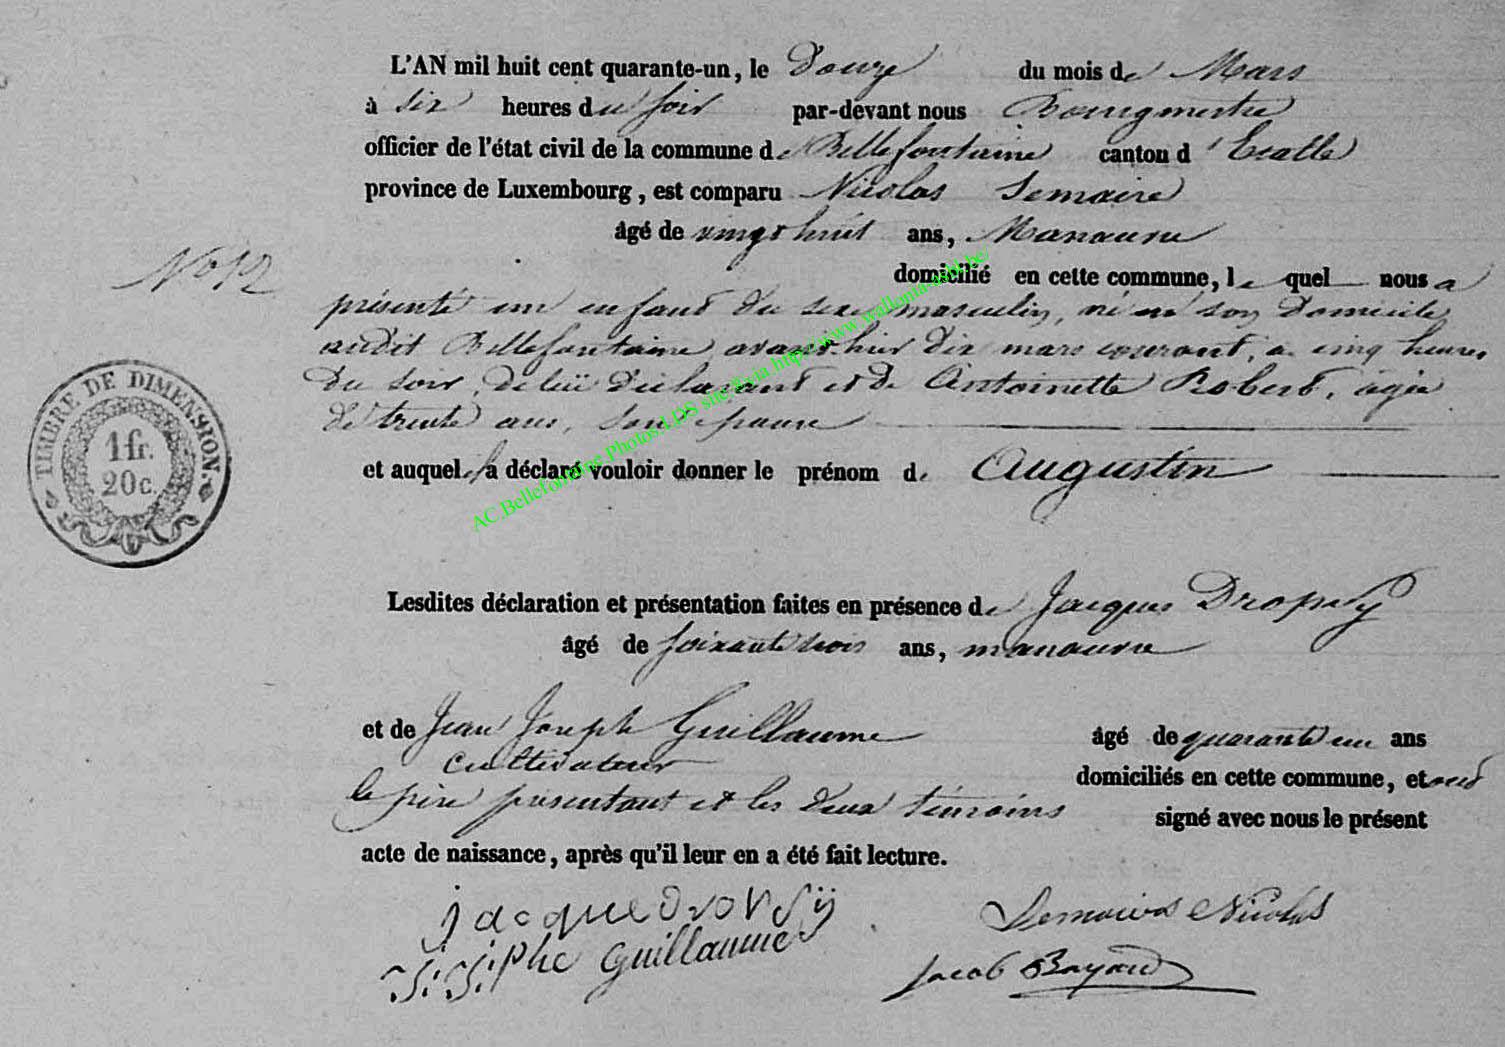 L'AN mil huit cent quarante-un, le Douze du mois de Mars
à six heures du soir par-devant nous Bourgmestre
officier de l'état civil de la commune de Bellefontaine canton d'Etalle
province de Luxembourg, est comparu Nicolas Lemaire
âgé de vingt huit ans, Manœuvre
No 12
domicilié en cette commune, lequel nous a
présenté un enfant du sexe masculin, né en son Domicile
audit Bellefontaine avant-hier dix mars courant, à cinq heures
du soir, de lui déclarant et de Antoinette Robert, agée
de trente ans, son épouse
et auquel il a déclaré vouloir donner le prénom de Augustin
TIMBRE DE DIMENSION.
1 fr.
20 c.
AC.Bellefontaine.Photos.LDS site via http://www.wallonia-asbl.be/
Lesdites déclaration et présentation faites en présence de Jacques Dropsy
âgé de soixante trois ans, manœuvre
et de Jean Joseph Guillaume âgé de quarante un ans
cultivateur domiciliés en cette commune, et ont
le père présentant et les deux témoins signé avec nous le présent
acte de naissance, après qu'il leur en a été fait lecture.
jacque dropsÿ Lemaire Nicolas
Guillaume Jacob Bayard